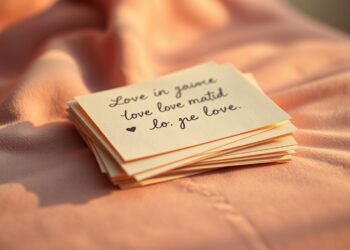 Love in gaiwe
love love matid
♥ lo. ɲe love.